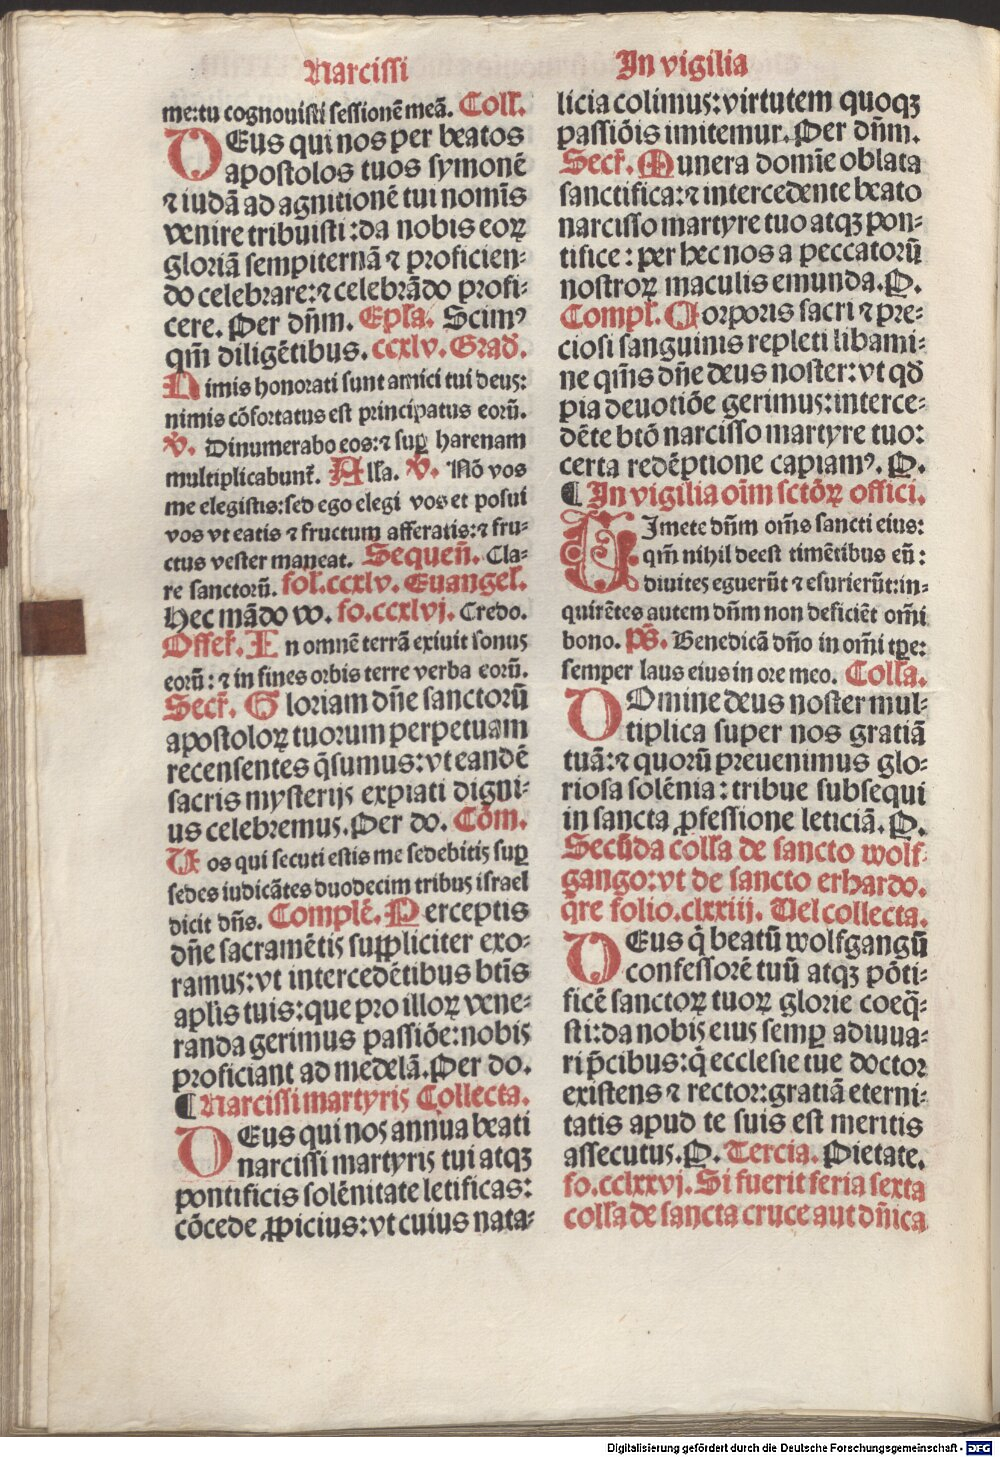 Narcissi
me: tu cognouisti sessionē meā. Coll'.
DEus qui nos per beatos
apostolos tuos symonē
⁊ iudā ad agnitionē tui nomīs
venire tribuisti : da nobis eoꝝ
gloriā sempiternā ⁊ proficien⸗
do celebrare: ⁊ celebrādo profi⸗
cere. Per dn̄m. Ep̄la. Scimꝰ
qm̄ diligētibus. ccxlv. Grad̄.
Nimis honorati sunt amici tui deus:
nimis cōfortatus est principatus eorū.
℣. Dinumerabo eos: ⁊ suꝑ harenam
multiplicabunt̄. Alla. ℣. Nō vos
me elegistis: sed ego elegi vos et posui
vos vt eatis ⁊ fructum afferatis: ⁊ fru⸗
ctus vester maneat. Sequen̄. Cla⸗
re sanctorū. fol. ccxlv. Euangel'.
Hec mādo vo. fo. ccxlvj. Credo.
Offer̄. In omnē terrā exiuit sonus
eorū: ⁊ in fines orbis terre verba eorū.
Secr̄. Gloriam dn̄e sanctorū
apostoloꝝ tuorum perpetuam
recensentes q̄sumus: vt eandē
sacris mysterijs expiati digni⸗
us celebremus. Per do. Cōm.
Vos qui secuti estis me sedebitis suꝑ
sedes iudicātes duodecim tribus israel
dicit dn̄s. Complē. Perceptis
dn̄e sacramētis suppliciter exo⸗
ramus: vt intercedētibus btīs
aplīs tuis: que pro illoꝝ vene⸗
randa gerimus passiōe: nobis
proficiant ad medelā. Per do.
¶ Narcissi martyris Collecta.
DEus qui nos annua beati
narcissi martyris tui atqꝫ
pontificis solēnitate letificas:
cōcede ꝓpicius: vt cuius nata⸗
In vigilia
licia colimus: virtutem quoqꝫ
passiōis imitemur. Per dn̄m.
Secr̄. Munera domīe oblata
sanctifica: ⁊ intercedente beato
narcisso martyre tuo atqꝫ pon⸗
tifice : per hec nos a peccatorū
nostroꝝ maculis emunda. P.
Compl'. Corporis sacri ⁊ pre⸗
ciosi sanguinis repleti libami⸗
ne qm̄s dn̄e deus noster: vt qd̄
pia deuotiōe gerimus: interce⸗
dēte btō narcisso martyre tuo:
certa redēptione capiamꝰ. P.
¶ In vigilia oīm sctōꝝ offici.
TImete dn̄m om̄s sancti eius:
qm̄ nihil deest timētibus eū :
diuites eguerūt ⁊ esurierūt: in⸗
quirētes autem dn̄m non deficiēt om̄i
bono. ps̄. Benedicā dn̄o in om̄i tꝑe:
semper laus eius in ore meo. Colla.
DOmine deus noster mul⸗
tiplica super nos gratiā
tuā: ⁊ quorū preuenimus glo⸗
riosa solēnia : tribue subsequi
in sancta ꝓfessione leticiā. P.
Secūda colla de sancto wolf⸗
gango: vt de sancto erhardo.
q̄re folio. clxxiij. Vel collecta.
DEus q̇ beatū wolfgangū
confessorē tuū atqꝫ pōti⸗
ficē sanctoꝝ tuoꝝ glorie coeq̄⸗
sti: da nobis eius semꝑ adiuua⸗
ri p̄cibus: q̇ ecclesie tue doctor
existens ⁊ rector: gratiā eterni⸗
tatis apud te suis est meritis
assecutus. P. Tercia. Pietate.
fo. cclxxvj. Si fuerit feria sexta
colla de sancta cruce aut dn̄ica
Digitalisierung gefördert durch die Deutsche Forschungsgemeinschaft - DFG